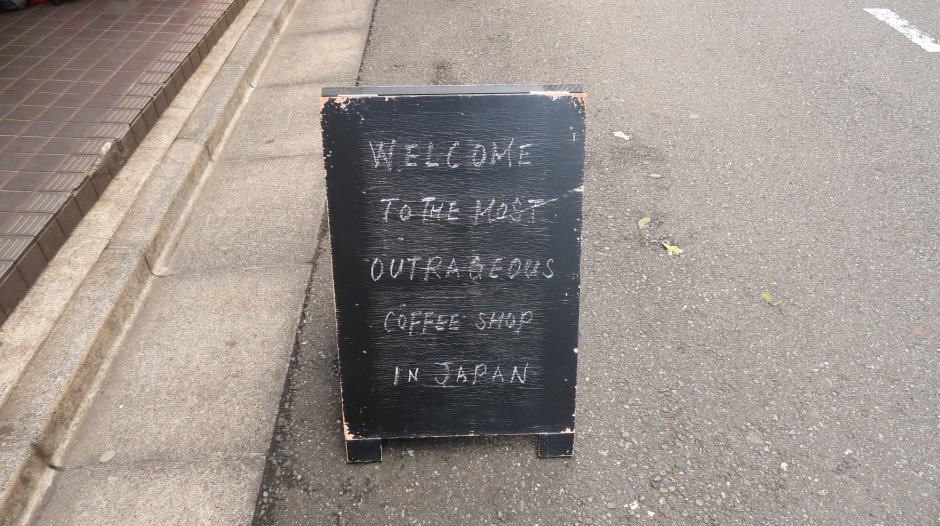 WELCOME
TO THE MOST
OUTRAGEOUS
COFFEE SHOP
IN JAPAN